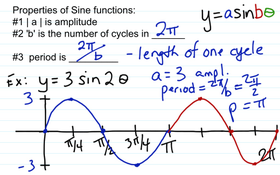 Properties of Sine functions:
y = a sin b θ
#1 | a | is amplitude
#2 'b' is the number of cycles in 2π
#3 period is 2π/b - length of one cycle
Ex: y = 3 sin 2 θ
a = 3 ampl.
period = 2π/b = 2π/2
p = π
3
-3
π/4
π/2
3π/4
π
2π